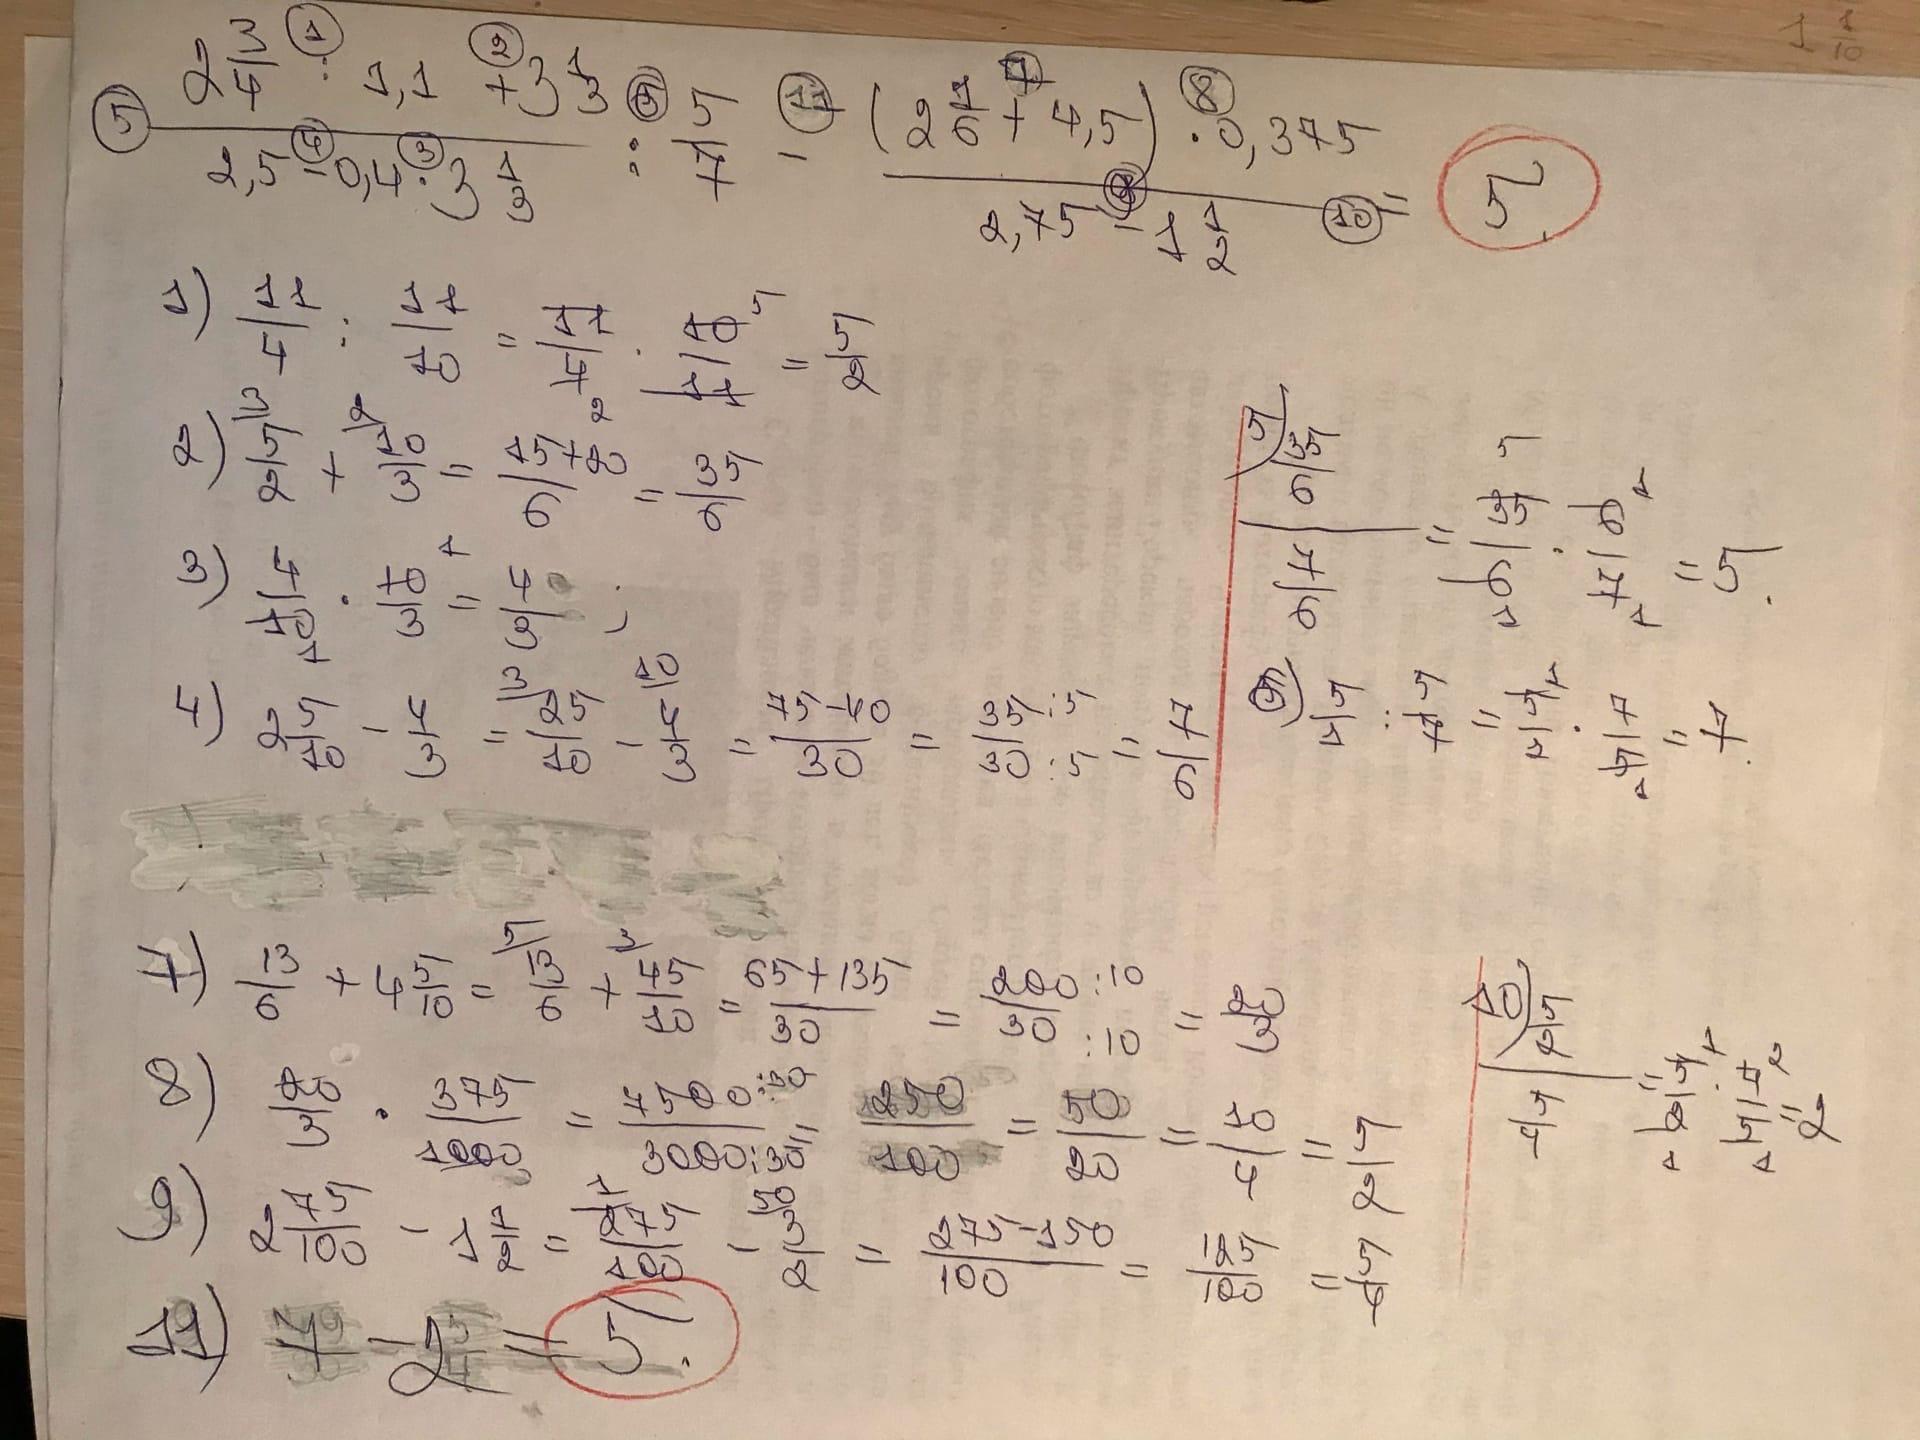 (2 3/4 : 1,1 + 3 1/3) / (2,5 - 0,4 · 3 1/3) : 5/7 - ((2 1/6 + 4,5) · 0,375) / (2,75 - 1 1/2) = 5.
1) 11/4 : 11/10 = 11/4 · 10/11 = 5/2
2) 5/2 + 10/3 = 15+20/6 = 35/6
3) 4/10 · 10/3 = 4/3 ;
4) 2 5/10 - 4/3 = 25/10 - 4/3 = 75-40/30 = 35:5/30:5 = 7/6
5) 35/6 / 7/6 = 35/6 · 6/7 = 5.
6) 5/1 : 5/7 = 5/1 · 7/5 = 7.
7) 13/6 + 4 5/10 = 13/6 + 45/10 = 65+135/30 = 200:10/30:10 = 20/3
8) 20/3 · 375/1000 = 7500:30/3000:30 = 250/100 = 50/20 = 10/4 = 5/2
9) 2 75/100 - 1 1/2 = 275/100 - 3/2 = 275-150/100 = 125/100 = 5/4
10) 5/2 / 5/4 = 5/2 · 4/5 = 2
11) 7 - 2 = 5.